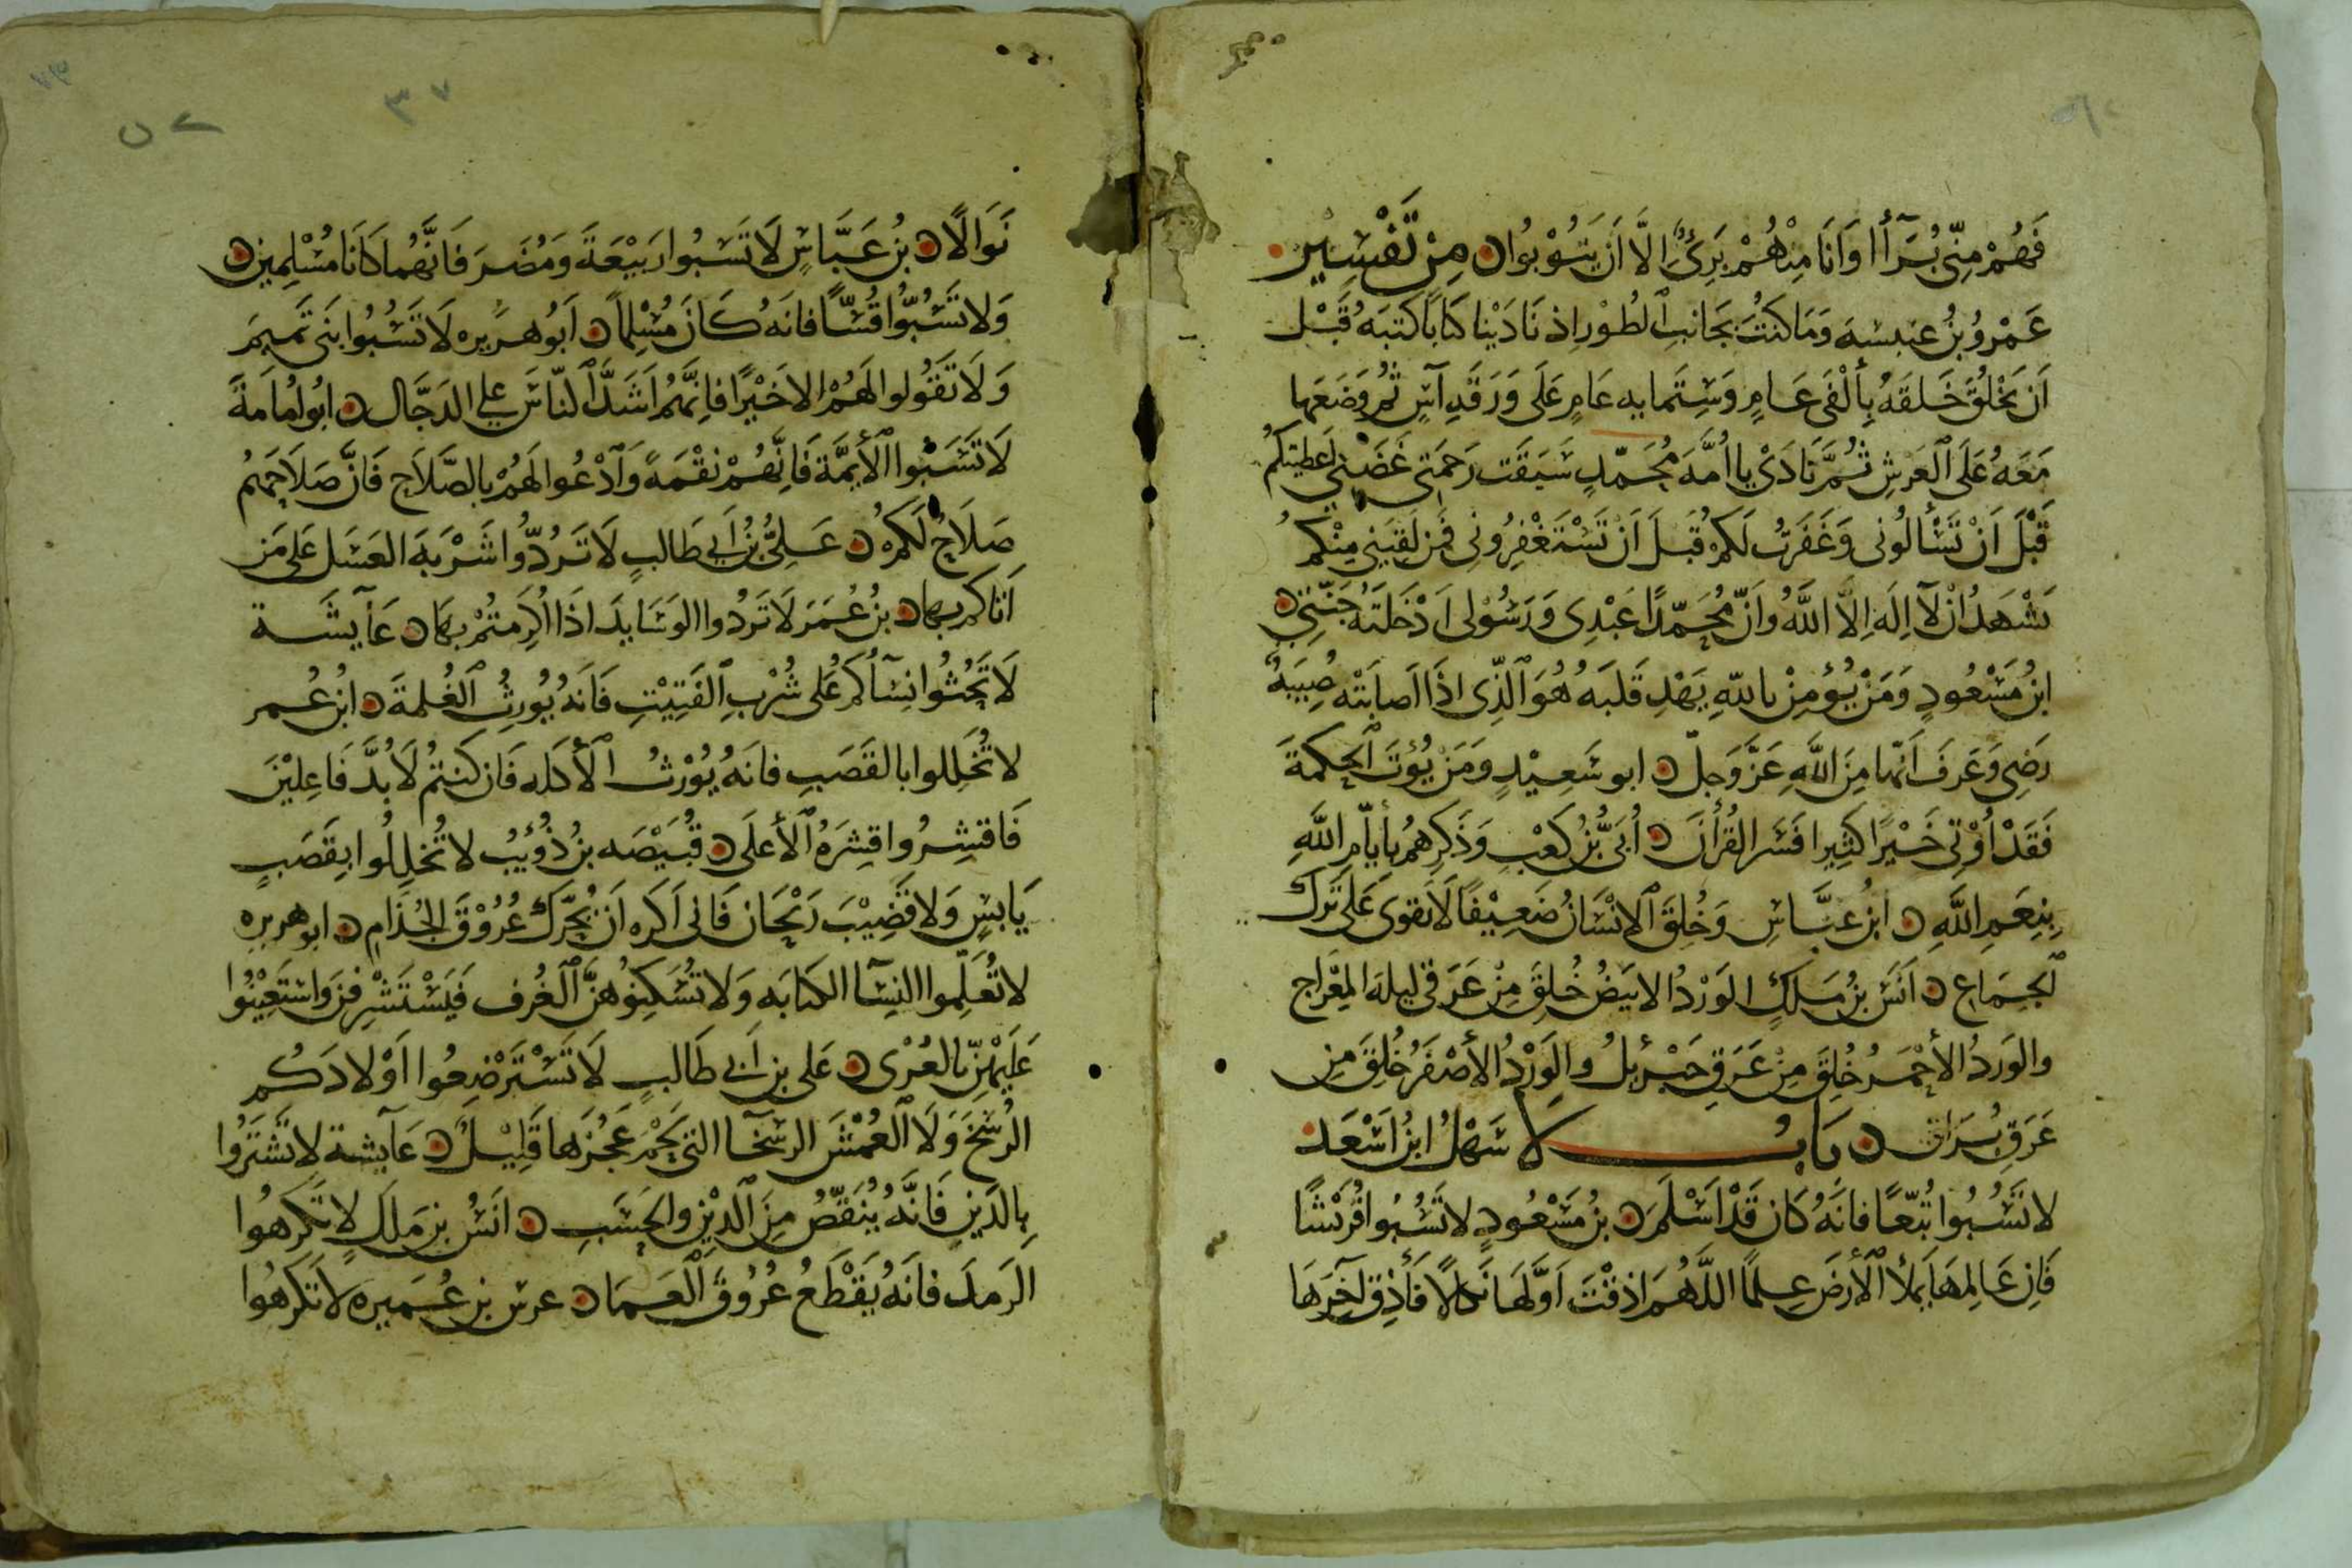 فَهُمْ مِنِّي بُرَآأُ وَانَا مِنْهُمْ بَرِئٌ اِلَّا اَن يَتُوْبُوا ن مِنْ تَفْسِيْرِ
عَمْرُو بْنُ عنبسه وَمَا كنتَ بجَانبِ الطُوْرِ اِذ نَادَيْنا كتابًا كتبَهُ قَبْل
اَن يَخْلُقَ خَلقَهُ بِأَلْفَىْ عَامٍ وَسِتمايه عَامٍ عَلَى وَرَقَهِ آسٍ ثُم وَضَعَها
مَعَهُ عَلَى اَلعَرْشِ ثُمَّ نَادَىْ يا اُمَّهَ مُحَمّدٍ سَبَقَت رَحمَتي غَضَبي اَعطيتكُم
قَبْلَ اَنْ تَسْألُونى وَغَفَرتُ لَكمُ قَبلَ اَنْ تَسْتَغْفِرُونِى فَمن لَقيَنِي مِنْكم
يَشْهَدُ اَنْ لَآ اِلَهَ اِلَّا اللَّهُ وَاَنّ مُحَمّدًا عَبْدِى وَرَسُوْلى اَدْخَلتَهُ جَنّتِي ن
ابنُ مَسْعُودٍ وَمَنْ يُؤمِنْ باللهِ يَهْدِ قَلبَهُ هُوَ الَّذِى اذَا اَصابَتْه مُصِيبَهٌ
رَضِى وَعَرفَ اَنَّها مِنَ اللَّهِ عَزَّوَجلّ ن ابو سَعِيْدٍ وَمَنْ يُؤتَ اَلحِكمةَ
فَقَدْ اُوْتِى خَيْرًا كثِيرا فَسّر القُرْأنَ ن اُبَىُّ بْنُ كَعْبٍ وَذَكِرهُمْ بِأَيَّامِ اللَّهِ
بِنِعَمِ اللَّهِ ن ابنُ عبّاسِ وَخُلِقَ اَلانْسَانُ ضَعِيْفًا لَا يَقوى عَلى تَرك
اَلجِمَاعِ ن اَنَسُ بنُ مَلكٍ الوَرْدُ الابيَضُ خُلِقَ مِنْ عَرَقى ليلهَ المِعْرَاج
والوَردُ الأَحْمَرُ خُلِقَ مِنْ عَرَقِ جَبْرئِلُ والوَرْدُ الأَصْفَرُ خُلِقَ مِن
عَرَقِ بُرَاق ن بَابُ لا سَهْلُ ابنُ اَسْعَد
لا تَسُبُوا تُبّعًا فانَهُ كَان قَدْ اَسْلَمَ ن بنُ مَسْعُودٍ لا تَسُبُوا قُرَيْشًا
فَاِن عَالِمهَا يَملأُ اَلأَرضَ عِلمًا اللَّهُمَ اذقْتَ اَوَّلَهَا نَكالًا فَأَذِق آخِرَهَا
نَوَالًا ن بْنُ عَبَّاسٍ لَا تَسَبُوا رَبيْعَةَ وَمُضَرَ فَانَّهُمَا كَانَا مُسْلِمِيْن ن
وَلا تَسُبُّوا قُسًّا فانَهُ كَانَ مُسْلِماً ن اَبُو هريره لَا تَسُبُوا بَنى تَميمَ
وَلَا تَقُولوا لَهُمْ الا خَيْرًا فاِنَّهُم اَشَدَّ النّاسَ على الدَجَّال ن ابُو اُمَامَةَ
لَا تَسَبُوا اَلأَئِمَّة فَاِنَّهُمْ نِقْمَهً وَآدْعُوا لَهُمْ بِالصَّلَاحِ فَانَّ صَلَاحَهُمُ
صَلَاحٌ لَكمُ ن عَلِىُّ بْنُ اَبى طَالبٍ لَا تَرُدُّوا شَرْبَهَ العَسَل عَلى مَن
اَتاكم بها ن بنُ عُمَرَ لَا تَرُدُوا الوَسَايدَ اذَا اُكْرِمتُمْ بِهَا ن عَآيشَة
لَا تَحُثُوا نِسَآكُم عَلى شُرْبِ الفَتِيْتِ فَانَهُ يُورِثُ اَلغُلمةَ ن ابنُ عُمر
لا تُخَلِلوا بالقَصَبِ فانَهُ يُوْرِثُ اَلأَكلَه فَان كنتمُ لَا بُدَّ فَاعِلِيْنَ
فَاقشِرُوا قِشرَهُ اَلأَعلَى ن قبيْصَه بنُ ذُؤيْبُ لا تُخلِلُوا بِقَصَبٍ
يَابسٍ وَلا قَضِيْبَ رَيْحَان فَانى اَكرَه اَن يُحَرّكَ عُرُوْقَ الجُذَامِ ن ابو هريره
لا تُعَلّمِوا النِسَآ الكتابَه وَلا تُسْكِنُوهُنَّ اَلغُرف فَيَسْتَشْرِفنَ وَاستَعِيْنُوا
عَلَيْهِنّ بالعُرْى ن عَلى بن اَبى طَالبٍ لَا تَسْتَرْضِعُوا اَوْلادَكُم
الرُسْحَ وَلَا اَلعُمْشَ الرسحَآ التى لَحْمُ عَجُزِها قَلِيْلٌ ن عَآيشة لا تَشْتَرُوا
بِالدَينِ فَانَّهُ يُنَقِّصُ مِنَ اَلدِيْنِ والحَسَبِ ن انَسُ بن مَلكٍ لا تَكرهُوا
الرَمدَ فانَهُ يَقْطَعُ عُرُوقَ اَلعَمَا ن عرس بن عُميره لا تَكرَهُوا